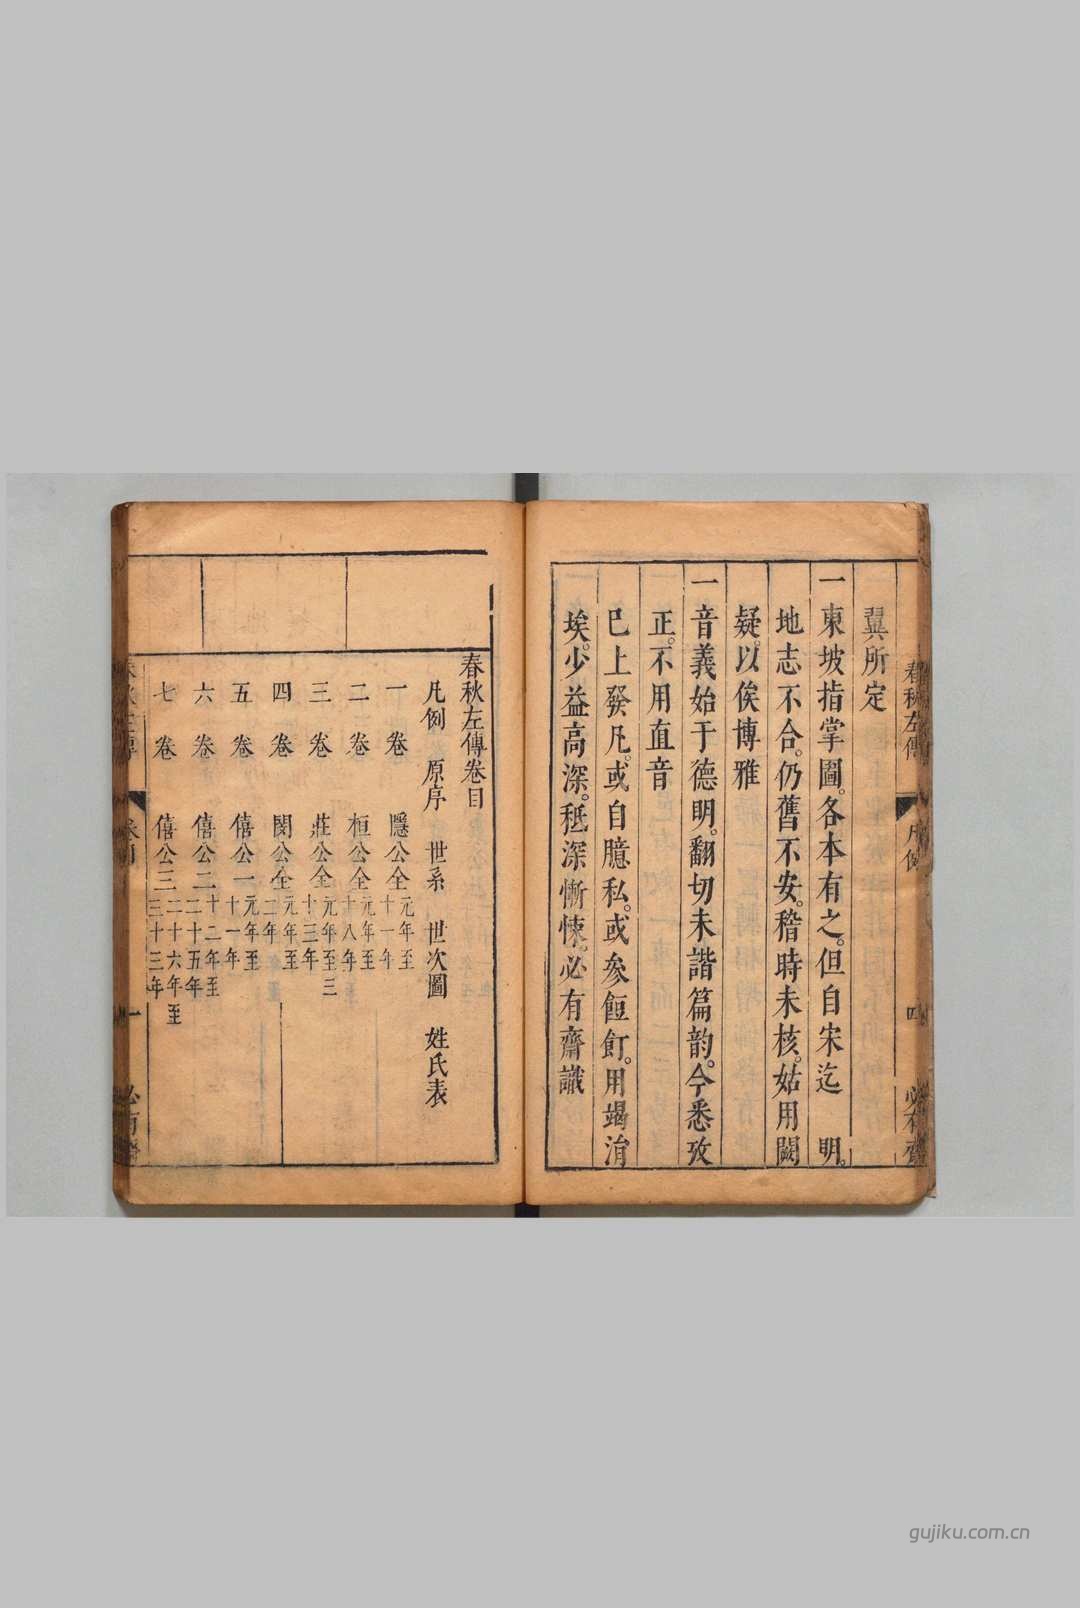 春秋左傳
凡例
四
必有齋
翼所定
一東坡指掌圖。各本有之。但自宋迄 明。
地志不合。仍舊不安。稽時未核。姑用闕
疑。以俟博雅
一音義始于德明。翻切未諧篇韵。今悉攷
正。不用直音
已上發凡。或自臆私。或參餖飣。用竭涓
埃。少益高深。秪深慚悚。必有齋識
春秋左傳卷目
凡例 原序 世系 世次圖 姓氏表
一卷 隱公全元年至十一年
二卷 桓公全元年至十八年
三卷 莊公全元年至三十三年
四卷 閔公全元年至二年
五卷 僖公一元年至十一年
六卷 僖公二十二年至二十五年
七卷 僖公三二十六年至三十三年
春秋左傳
卷目
一
必有齋
gujiku.com.cn